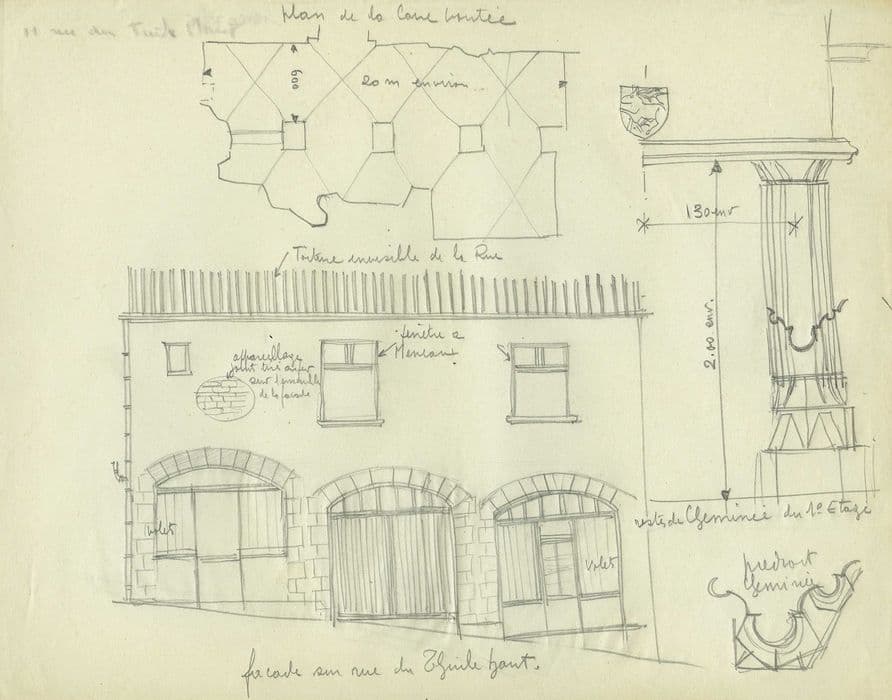 11 rue du Thuile
plan de la Cave voutée
600
20 m environ
Toiture invisible de la Rue
fenêtre a
Meneaux
appareillage
joint tiré au fer
sur l'ensemble
de la façade
volet
volet
façade sur rue du Thuile haut.
130 env
2.00 env.
restes de Cheminée du 1º Etage
piedroit
Cheminée